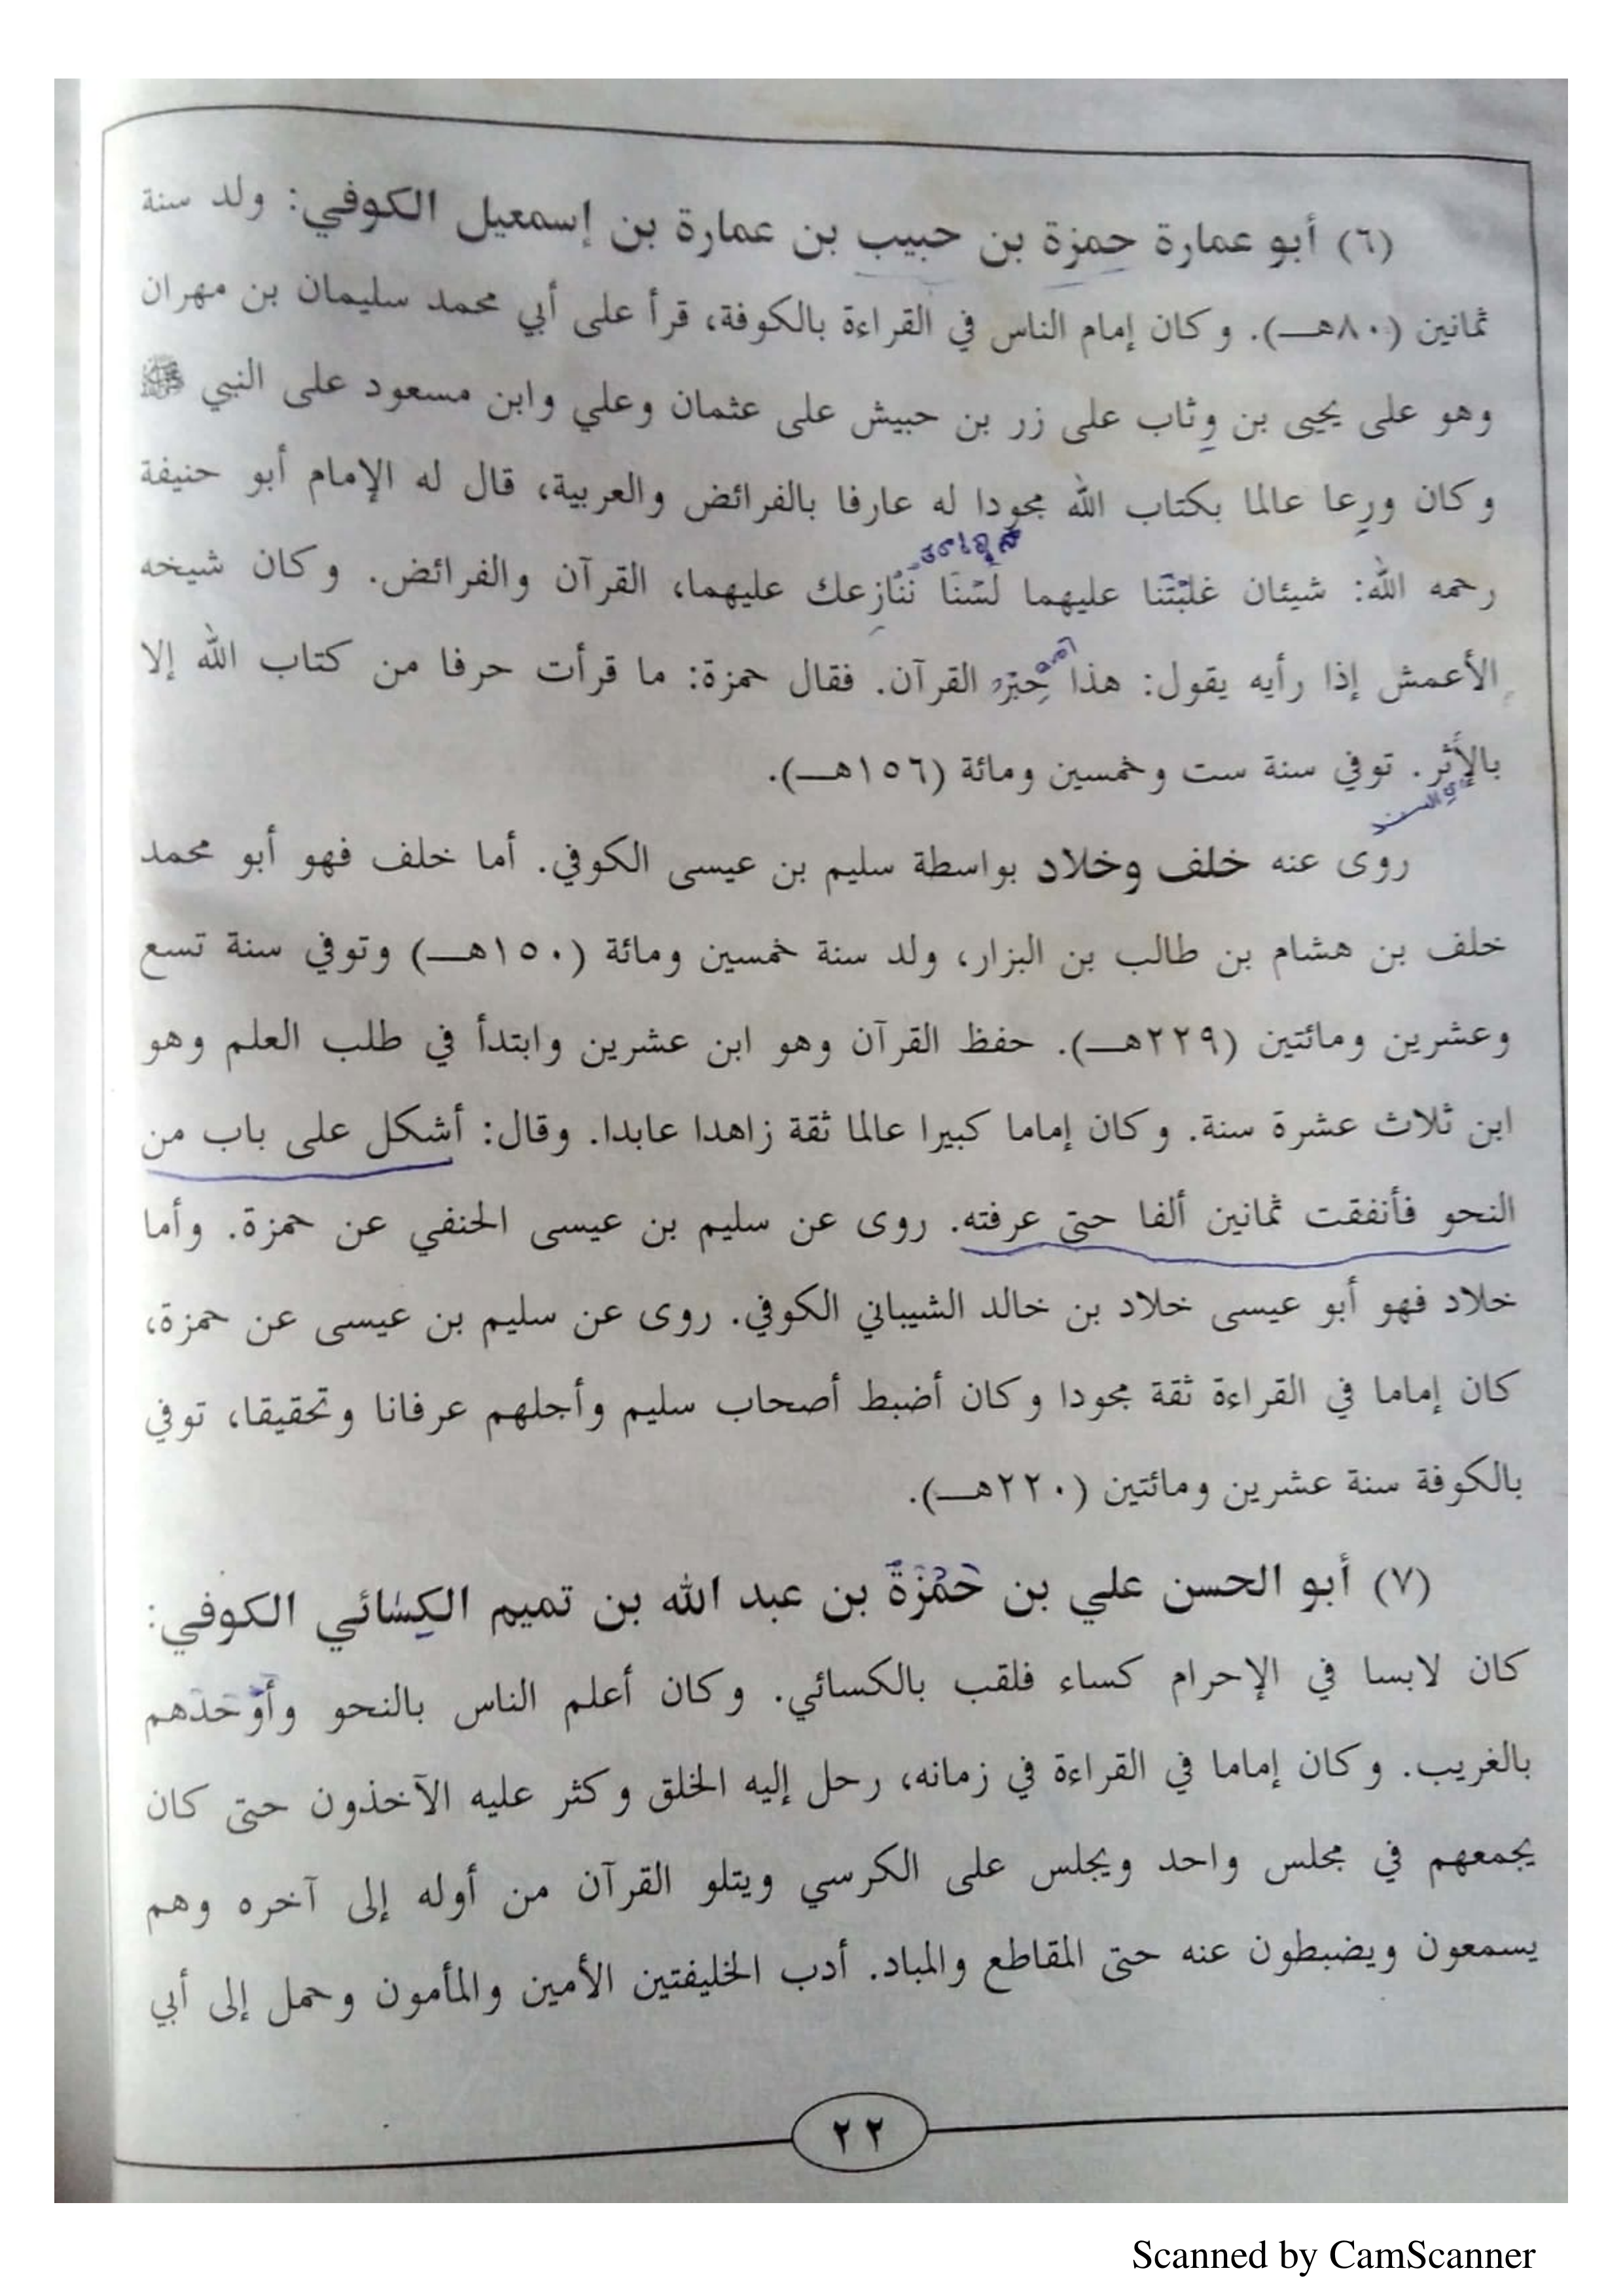 (٦) أبو عمارة حمزة بن حبيب بن عمارة بن إسمعيل الكوفي: ولد سنة
ثمانين (٨٠هـ). وكان إمام الناس في القراءة بالكوفة، قرأ على أبي محمد سليمان بن مهران
وهو على يحيى بن وِثاب على زر بن حبيش على عثمان وعلي وابن مسعود على النبي ﷺ
وكان ورِعا عالما بكتاب الله مجودا له عارفا بالفرائض والعربية، قال له الإمام أبو حنيفة
رحمه الله: شيئان غلبْتَنا عليهما لَسْنَا نُنَازِعك عليهما، القرآن والفرائض. وكان شيخه
الأعمش إذا رأيه يقول: هذا حِبْرُ القرآن. فقال حمزة: ما قرأت حرفا من كتاب الله إلا
بالأثر. توفي سنة ست وخمسين ومائة (١٥٦هـ).
أي السند
روى عنه خلف وخلاد بواسطة سليم بن عيسى الكوفي. أما خلف فهو أبو محمد
خلف بن هشام بن طالب بن البزار، ولد سنة خمسين ومائة (١٥٠هـ) وتوفي سنة تسع
وعشرين ومائتين (٢٢٩هـ). حفظ القرآن وهو ابن عشرين وابتدأ في طلب العلم وهو
ابن ثلاث عشرة سنة. وكان إماما كبيرا عالما ثقة زاهدا عابدا. وقال: أشكل على باب من
النحو فأنفقت ثمانين ألفا حتى عرفته. روى عن سليم بن عيسى الحنفي عن حمزة. وأما
خلاد فهو أبو عيسى خلاد بن خالد الشيباني الكوفي. روى عن سليم بن عيسى عن حمزة،
كان إماما في القراءة ثقة مجودا وكان أضبط أصحاب سليم وأجلهم عرفانا وتحقيقا، توفي
بالكوفة سنة عشرين ومائتين (٢٢٠هـ).
(٧) أبو الحسن علي بن حَمْزَةَ بن عبد الله بن تميم الكِسَائي الكوفي:
كان لابسا في الإحرام كساء فلقب بالكسائي. وكان أعلم الناس بالنحو وأَوْحَدَهم
بالغريب. وكان إماما في القراءة في زمانه، رحل إليه الخلق وكثر عليه الآخذون حتى كان
يجمعهم في مجلس واحد ويجلس على الكرسي ويتلو القرآن من أوله إلى آخره وهم
يسمعون ويضبطون عنه حتى المقاطع والمباد. أدب الخليفتين الأمين والمأمون وحمل إلى أبي
٢٢
Scanned by CamScanner